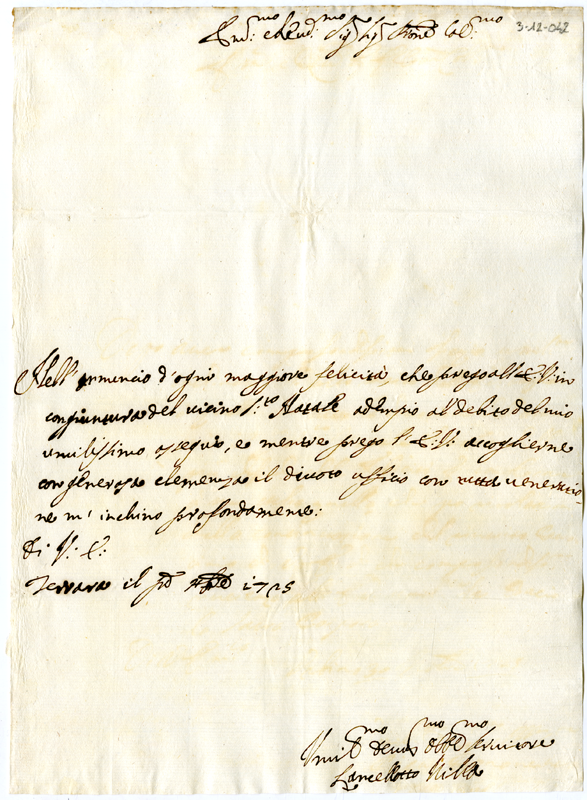 3-12-042
Em:mo e Rev:mo Sig.r Sig.r Pron.e Col:mo
Nell'annuncio d'ogni maggiore felicità, che prego all'E.V. in
congiuntura del vicino S:to Natale adempio al debito del mio
umilissimo ossequio, e mentre prego l'E:V: accoglierne
con generosa clemenza il divoto ufficio con tutta venerazio-
ne m'inchino profondamente:
Di V: E:
Ferrara il p.o Xbre 1725
Umil.mo devot.mo obb.mo servitore
Lancellotto Villa